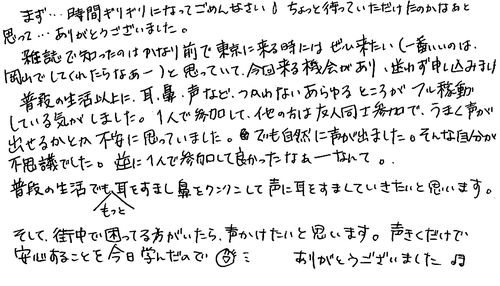 まず…時間ギリギリになってごめんなさい！ちょっと待っていただけたのかなぁと
思って…ありがとうございました。
雑誌で知ったのはかなり前で東京に来る時にはぜひ来たい（一番いいのは、
岡山でしてくれたらなぁー）と思っていて、今回来る機会があり、迷わず申し込みました
普段の生活以上に、耳、鼻、声など、つかめないあらゆるところがフル稼動
している気がしました。1人で参加して、他の方は友人同士参加で、うまく声が
出せるかとか不安に思っていました。でも自然に声が出ました。そんな自分が
不思議でした。逆に1人で参加して良かったなぁーなんて。
普段の生活でももっと耳をすまし鼻をクンクンして声に耳をすましていきたいと思います。
そして、街中で困ってる方がいたら、声かけたいと思います。声きくだけで
安心することを今日学んだので
ありがとうございました